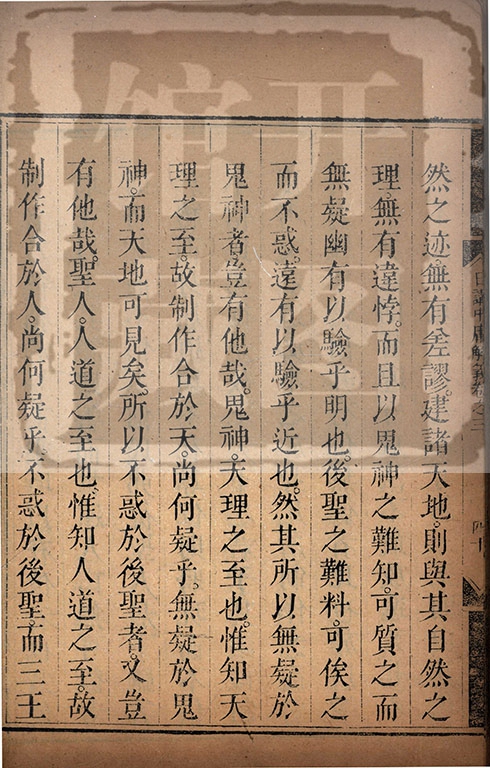 然之迹。無有差謬。建諸天地。則與其自然之
理無有違悖。而且以鬼神之難知。可質之而
無疑。幽有以驗乎明也。後聖之難料。可俟之
而不惑。遠有以驗乎近也。然其所以無疑於
鬼神者。豈有他哉。鬼神。天理之至也。惟知天
理之至。故制作合於天。尚何疑乎。無疑於鬼
神。而天地可見矣。所以不惑於後聖者。又豈
有他哉。聖人。人道之至也。惟知人道之至。故
制作合於人。尚何疑乎。不惑於後聖。而三王
日講中庸解義卷之三
四十